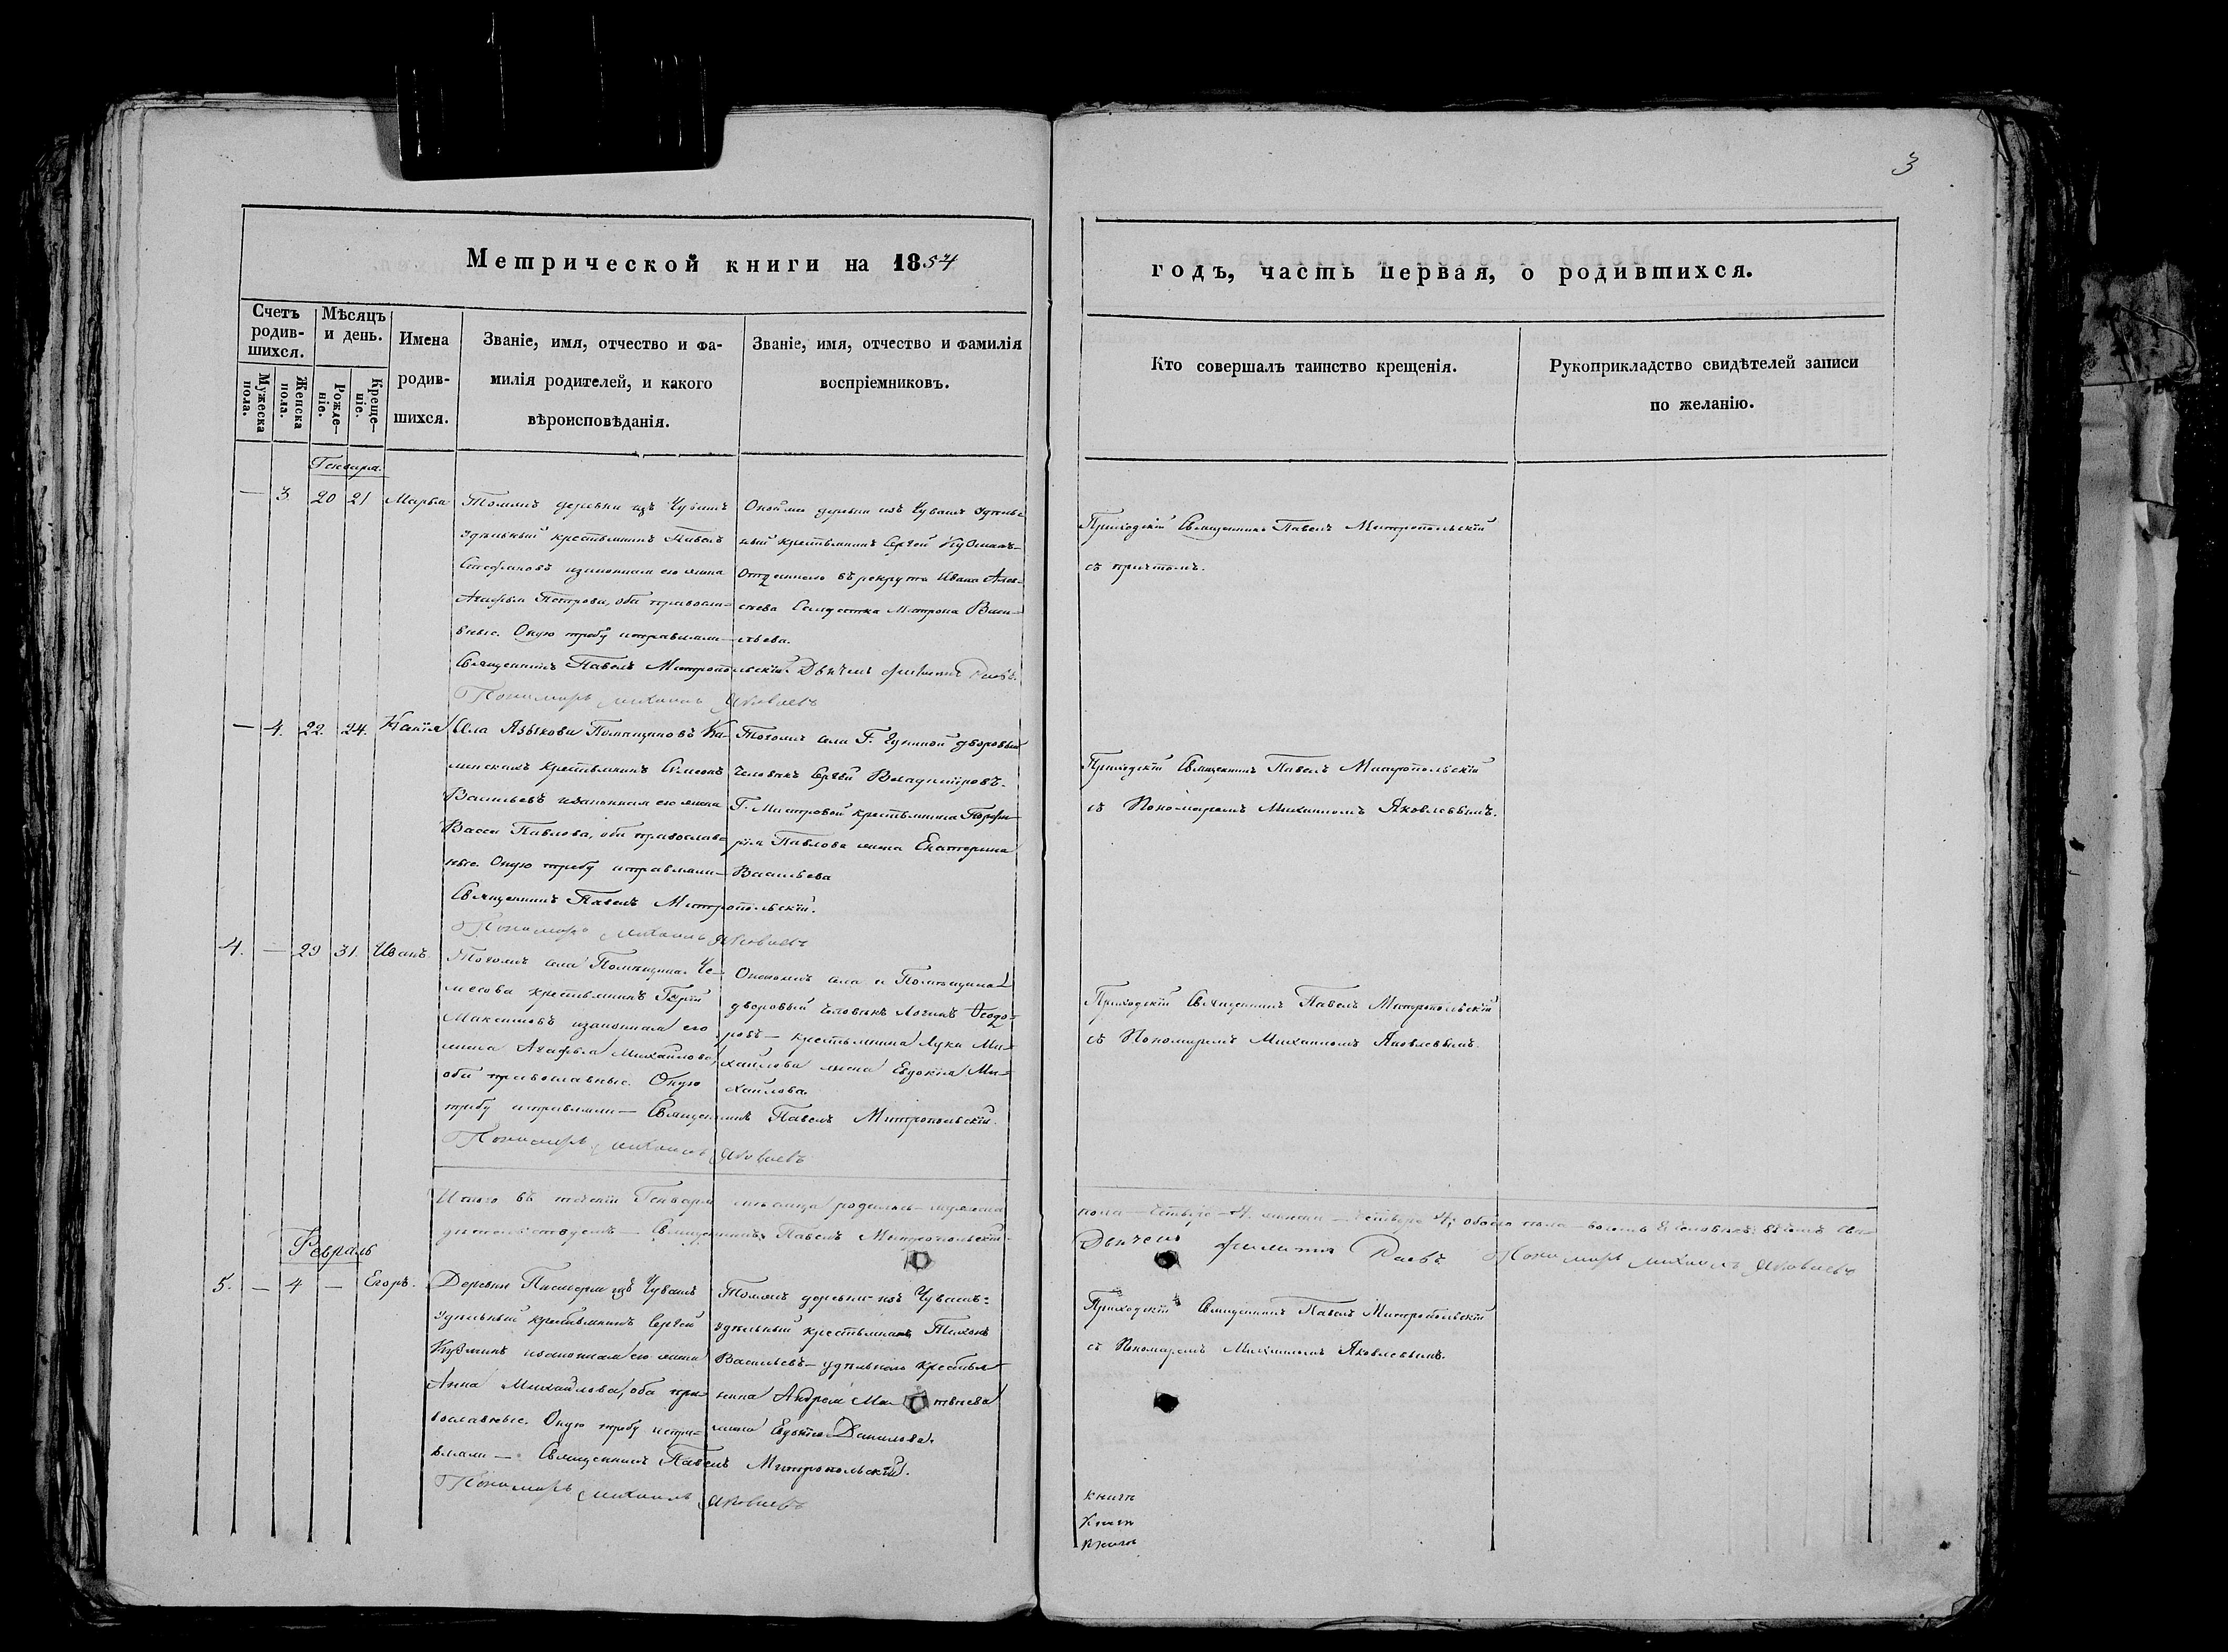 3
Метрической книги на 1854
годъ, часть первая, о родившихся.
Счетъ родив-
шихся.
Мужеска пола.
Женска пола.
Мѣсяцъ и день.
Рожде-
ніе.
Креще-
ніе.
Имена
родив-
шихся.
Званіе, имя, отчество и фа-
милія родителей, и какого
вѣроисповѣданія.
Званіе, имя, отчество и фамилія
воспріемниковъ.
Кто совершалъ таинство крещенія.
Рукоприкладство свидѣтелей записи
по желанію.
Генваря.
— 3 20 21 Марья
Тоямъ деревни изъ Чувашъ
удѣльный крестьянинъ Павелъ
Стефановъ изаконная его жена
Агафья Петрова, оба православ-
ные. Оную требу исправляли —
Священникъ Павелъ Митропольскій. Дьячекъ Филиппъ Раевъ.
Пономарь Михаилъ Яковлевъ
Онойже деревни изъ Чувашъ удѣль-
ный крестьянинъ Сергѣй Кузминъ —
Отданнаго въ рекруты Ивана Алек-
сѣева Солдатка Матрона Васи-
льева.
Приходскій Священникъ Павелъ Митропольскій
съ причтомъ.
— 4. 22. 24. Ксанія
Села Языкова Помѣщиковъ
крестьянинъ Симеонъ
Васильевъ изаконная его жена
Васса Павлова, оба православ-
ные. Оную требу исправляли —
Священникъ Павелъ Митропольскій.
Пономарь Михаилъ Яковлевъ
Тогожъ села Г. дворовый
человѣкъ Сергѣй Владиміровъ.
Г. крестьянина Порфи-
рія Павлова жена Екатерина
Васильева
Приходскій Священникъ Павелъ Митропольскій
съ Пономаремъ Михаиломъ Яковлевымъ.
4. — 29 31. Иванъ.
Тогожъ села Помѣщика Че-
месова крестьянинъ Гурій
Максимовъ изаконная его
жена Агафья Михайлова,
оба православные. Оную
требу исправляли — Священникъ Павелъ Митропольскій.
Пономарь Михаилъ Яковлевъ
Онагожъ села и Помѣщика
дворовый человѣкъ Логинъ Ѳеодо-
ровъ — крестьянина Луки Ми-
хайлова жена Евдокія Ми-
хайлова.
Приходскій Священникъ Павелъ Митропольскій
съ Пономаремъ Михаиломъ Яковлевымъ.
Итого въ теченіи Генваря мѣсяца родилось — мужеска
пола — четверо — 4. женска — четверо 4; обоего пола — восемь 8 человѣкъ: въ чемъ сви-
дѣтельствуемъ — Священникъ Павелъ Митропольскій.
Дьячекъ Филиппъ Раевъ. Пономарь Михаилъ Яковлевъ
Февраль
5. — 4 — Егоръ.
Деревни изъ Чувашъ
удѣльный крестьянинъ Сергѣй
Кузминъ изаконная его жена
Анна Михайлова, оба пра-
вославные. Оную требу испра-
вляли — Священникъ Павелъ Митропольскій.
Пономарь Михаилъ Яковлевъ
Тоямъ деревни изъ Чувашъ
удѣльный крестьянинъ Тихонъ
Васильевъ — удѣльнаго крестья-
нина Андрея Матвѣева
жена Евдокія Данилова.
Приходскій Священникъ Павелъ Митропольскій
съ Пономаремъ Михаиломъ Яковлевымъ.
книги
Книги
книги